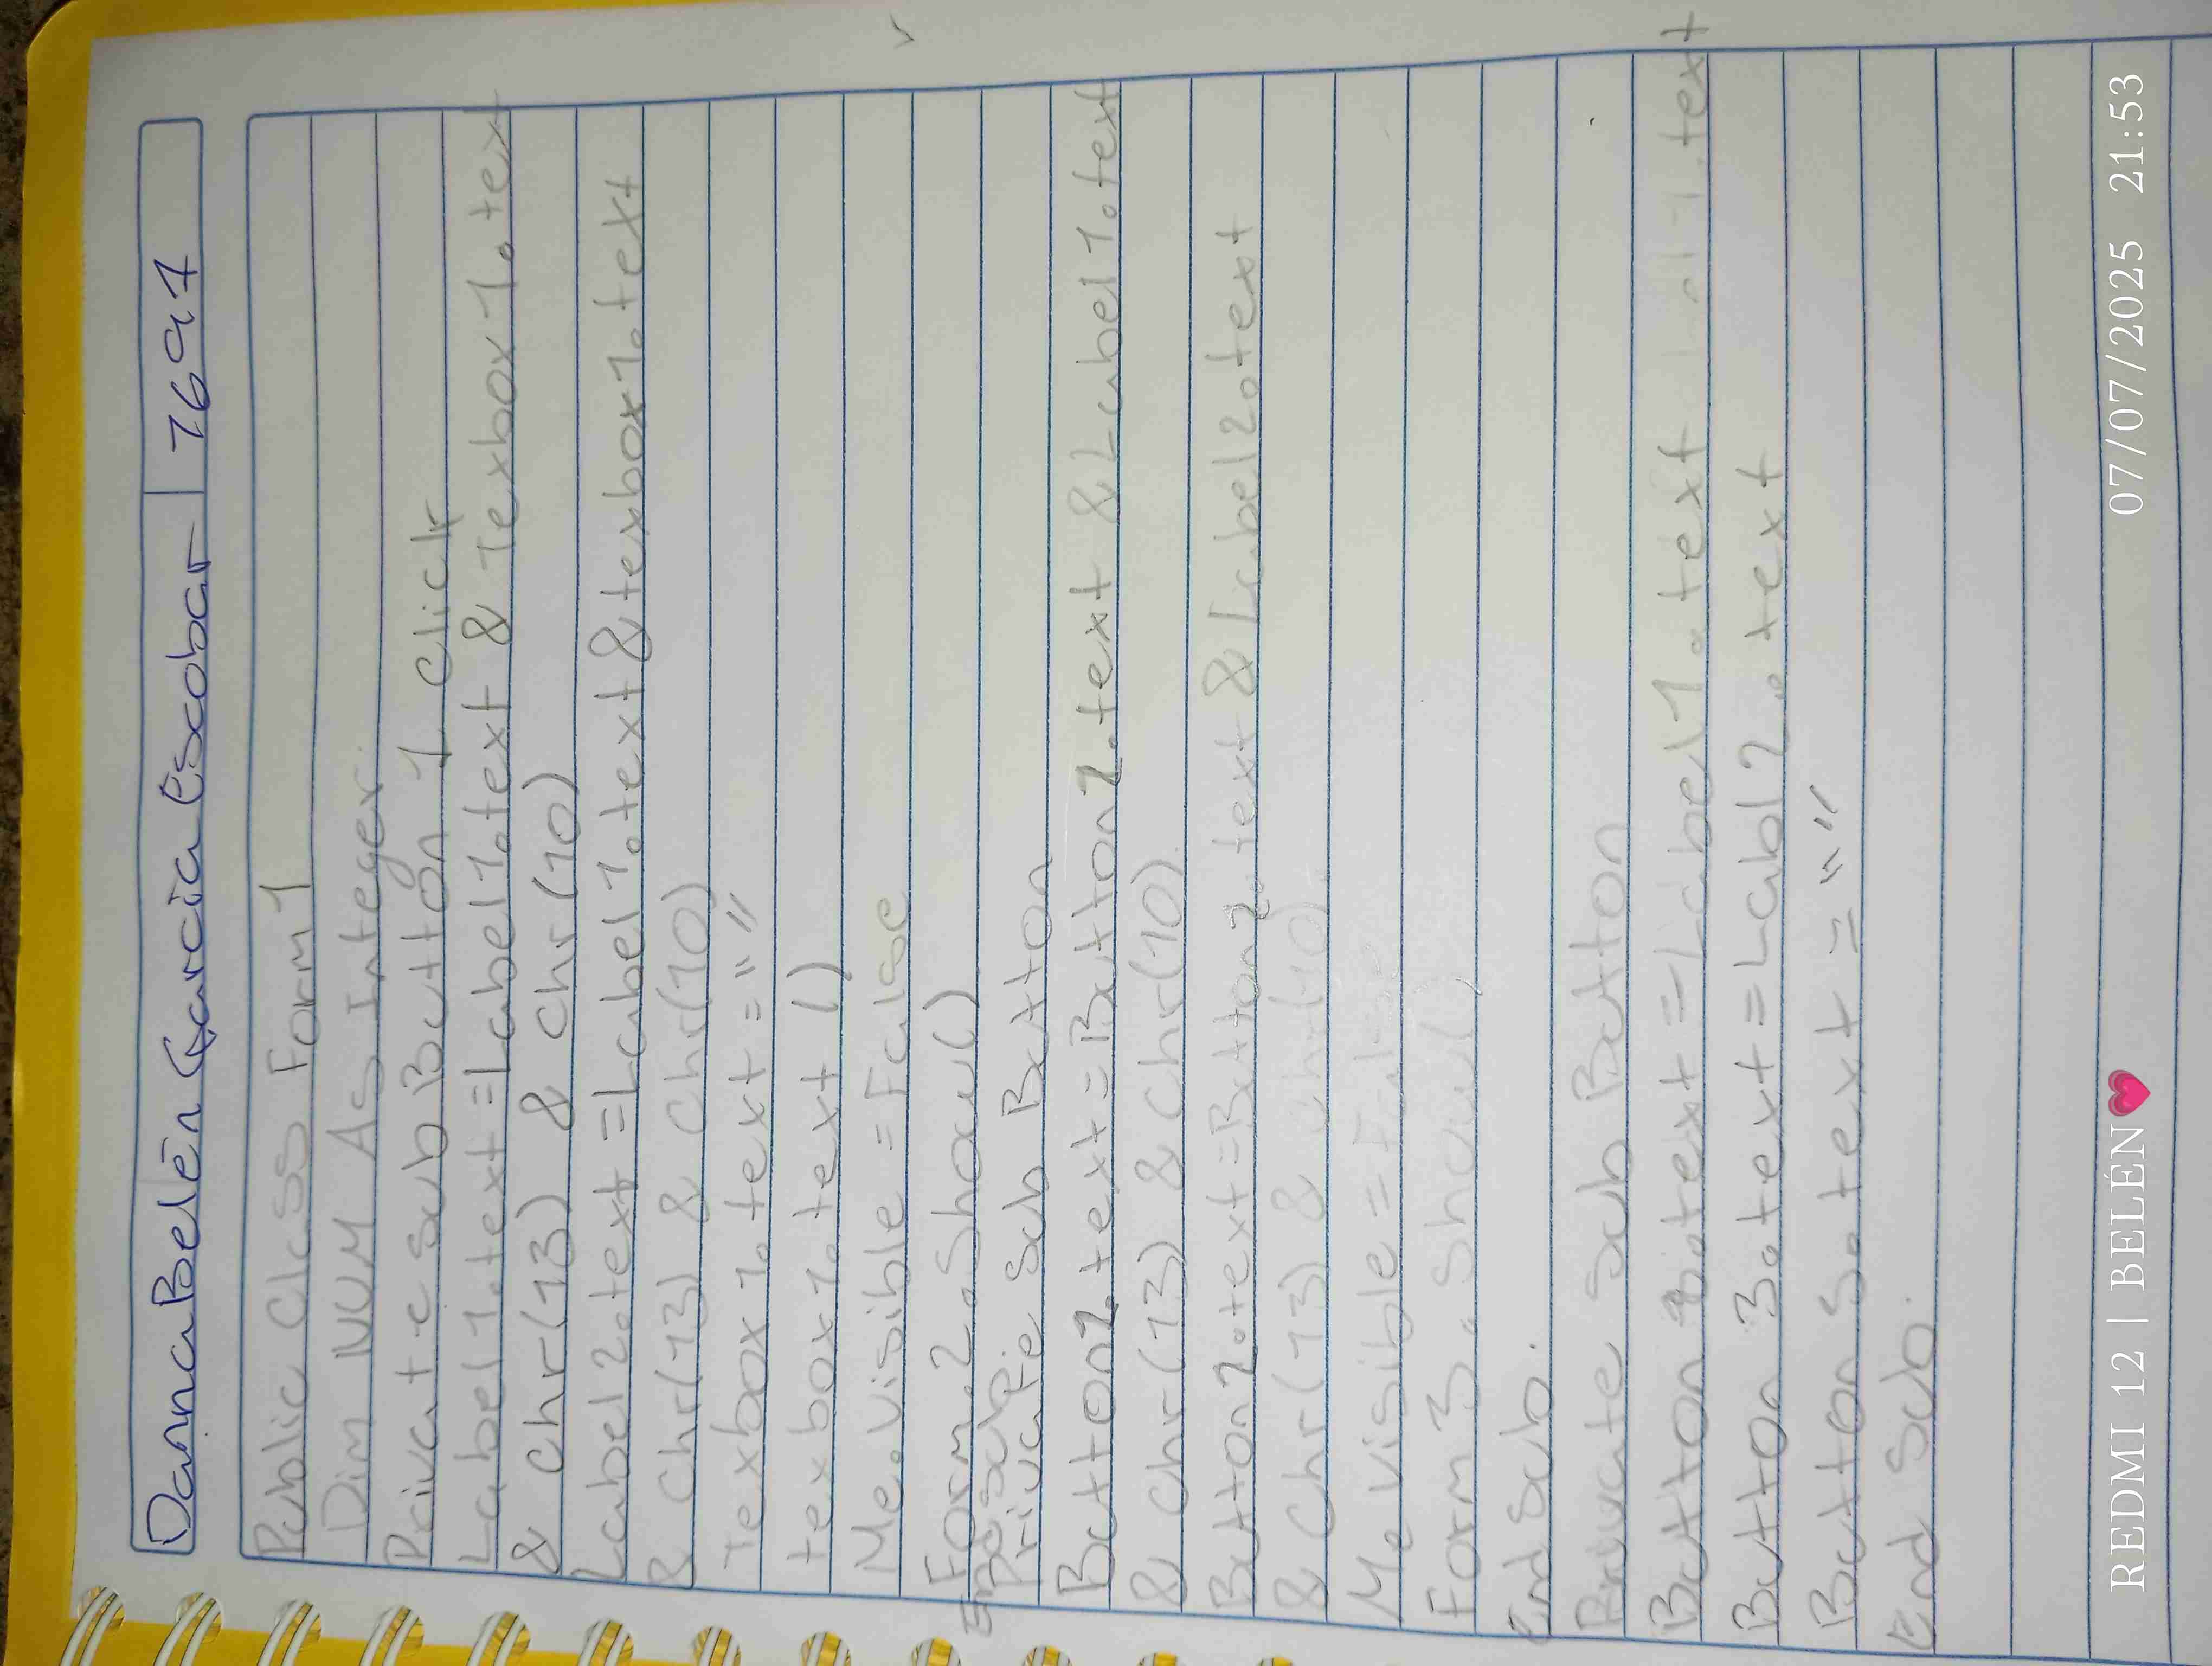 Danna Belén García Escobar | 7697
Public Class Form1
Dim NUM As Integer.
Private Sub Button 1 Click
Label1.text = Label1.text & Texbox1.text
& Chr(13) & Chr(10)
Label2.text = Label1.text & texbox1.text
& Chr(13) & Chr(10)
Texbox1.text = " "
texbox1.text ()
Me.Visible = False
Form.2.Show()
End Sub
Private Sub Button
Button2.text = Button2.text & Label1.text
& Chr(13) & Chr(10)
Button2.text = Button2.text & Label2.text
& Chr(13) & Chr(10)
Me Visible = False
Form 3.Show(
end Sub.
Private Sub Button
Button 3.text = Label1.text text
Button 3.text = Labl2.text
Button 3.text = " "
End Sub.
REDMI 12 | BELÉN💗 07/07/2025 21:53